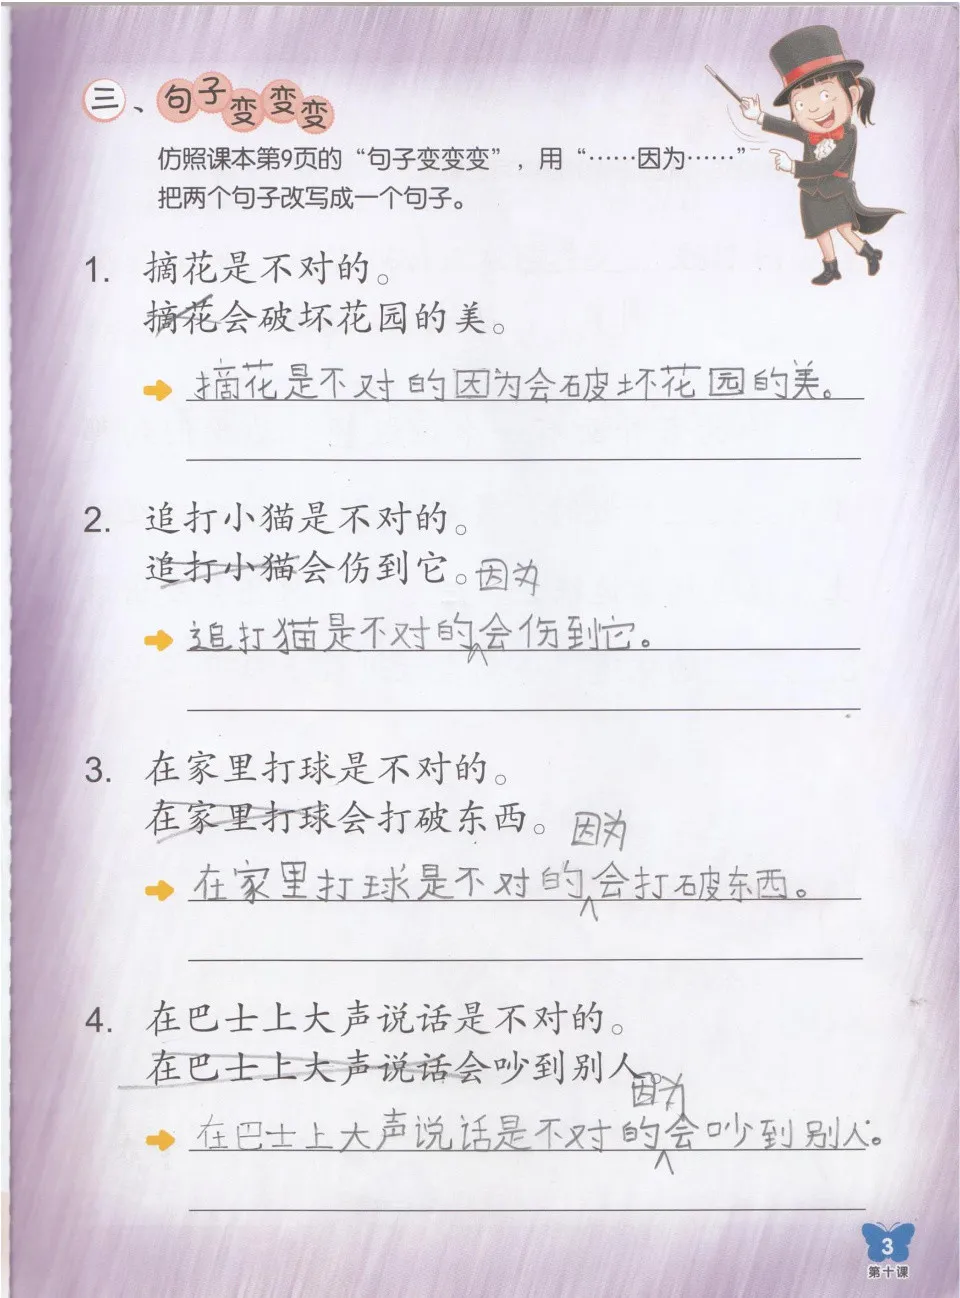 三、句子变变变
仿照课本第9页的“句子变变变”，用“……因为……”
把两个句子改写成一个句子。
1. 摘花是不对的。
摘花会破坏花园的美。
摘花是不对的因为会破坏花园的美。
2. 追打小猫是不对的。
追打小猫会伤到它。
因为
追打猫是不对的会伤到它。
3. 在家里打球是不对的。
在家里打球会打破东西。
因为
在家里打球是不对的会打破东西。
4. 在巴士上大声说话是不对的。
在巴士上大声说话会吵到别人。
因为
在巴士上大声说话是不对的会吵到别人。
3
第十课